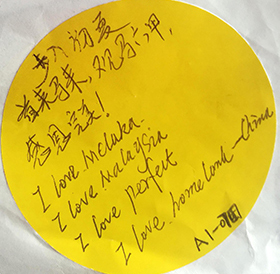 初夏
首来马来，观马六甲，
I love Melaka.
I love Malaysia
I love perfect
I love homeland—China